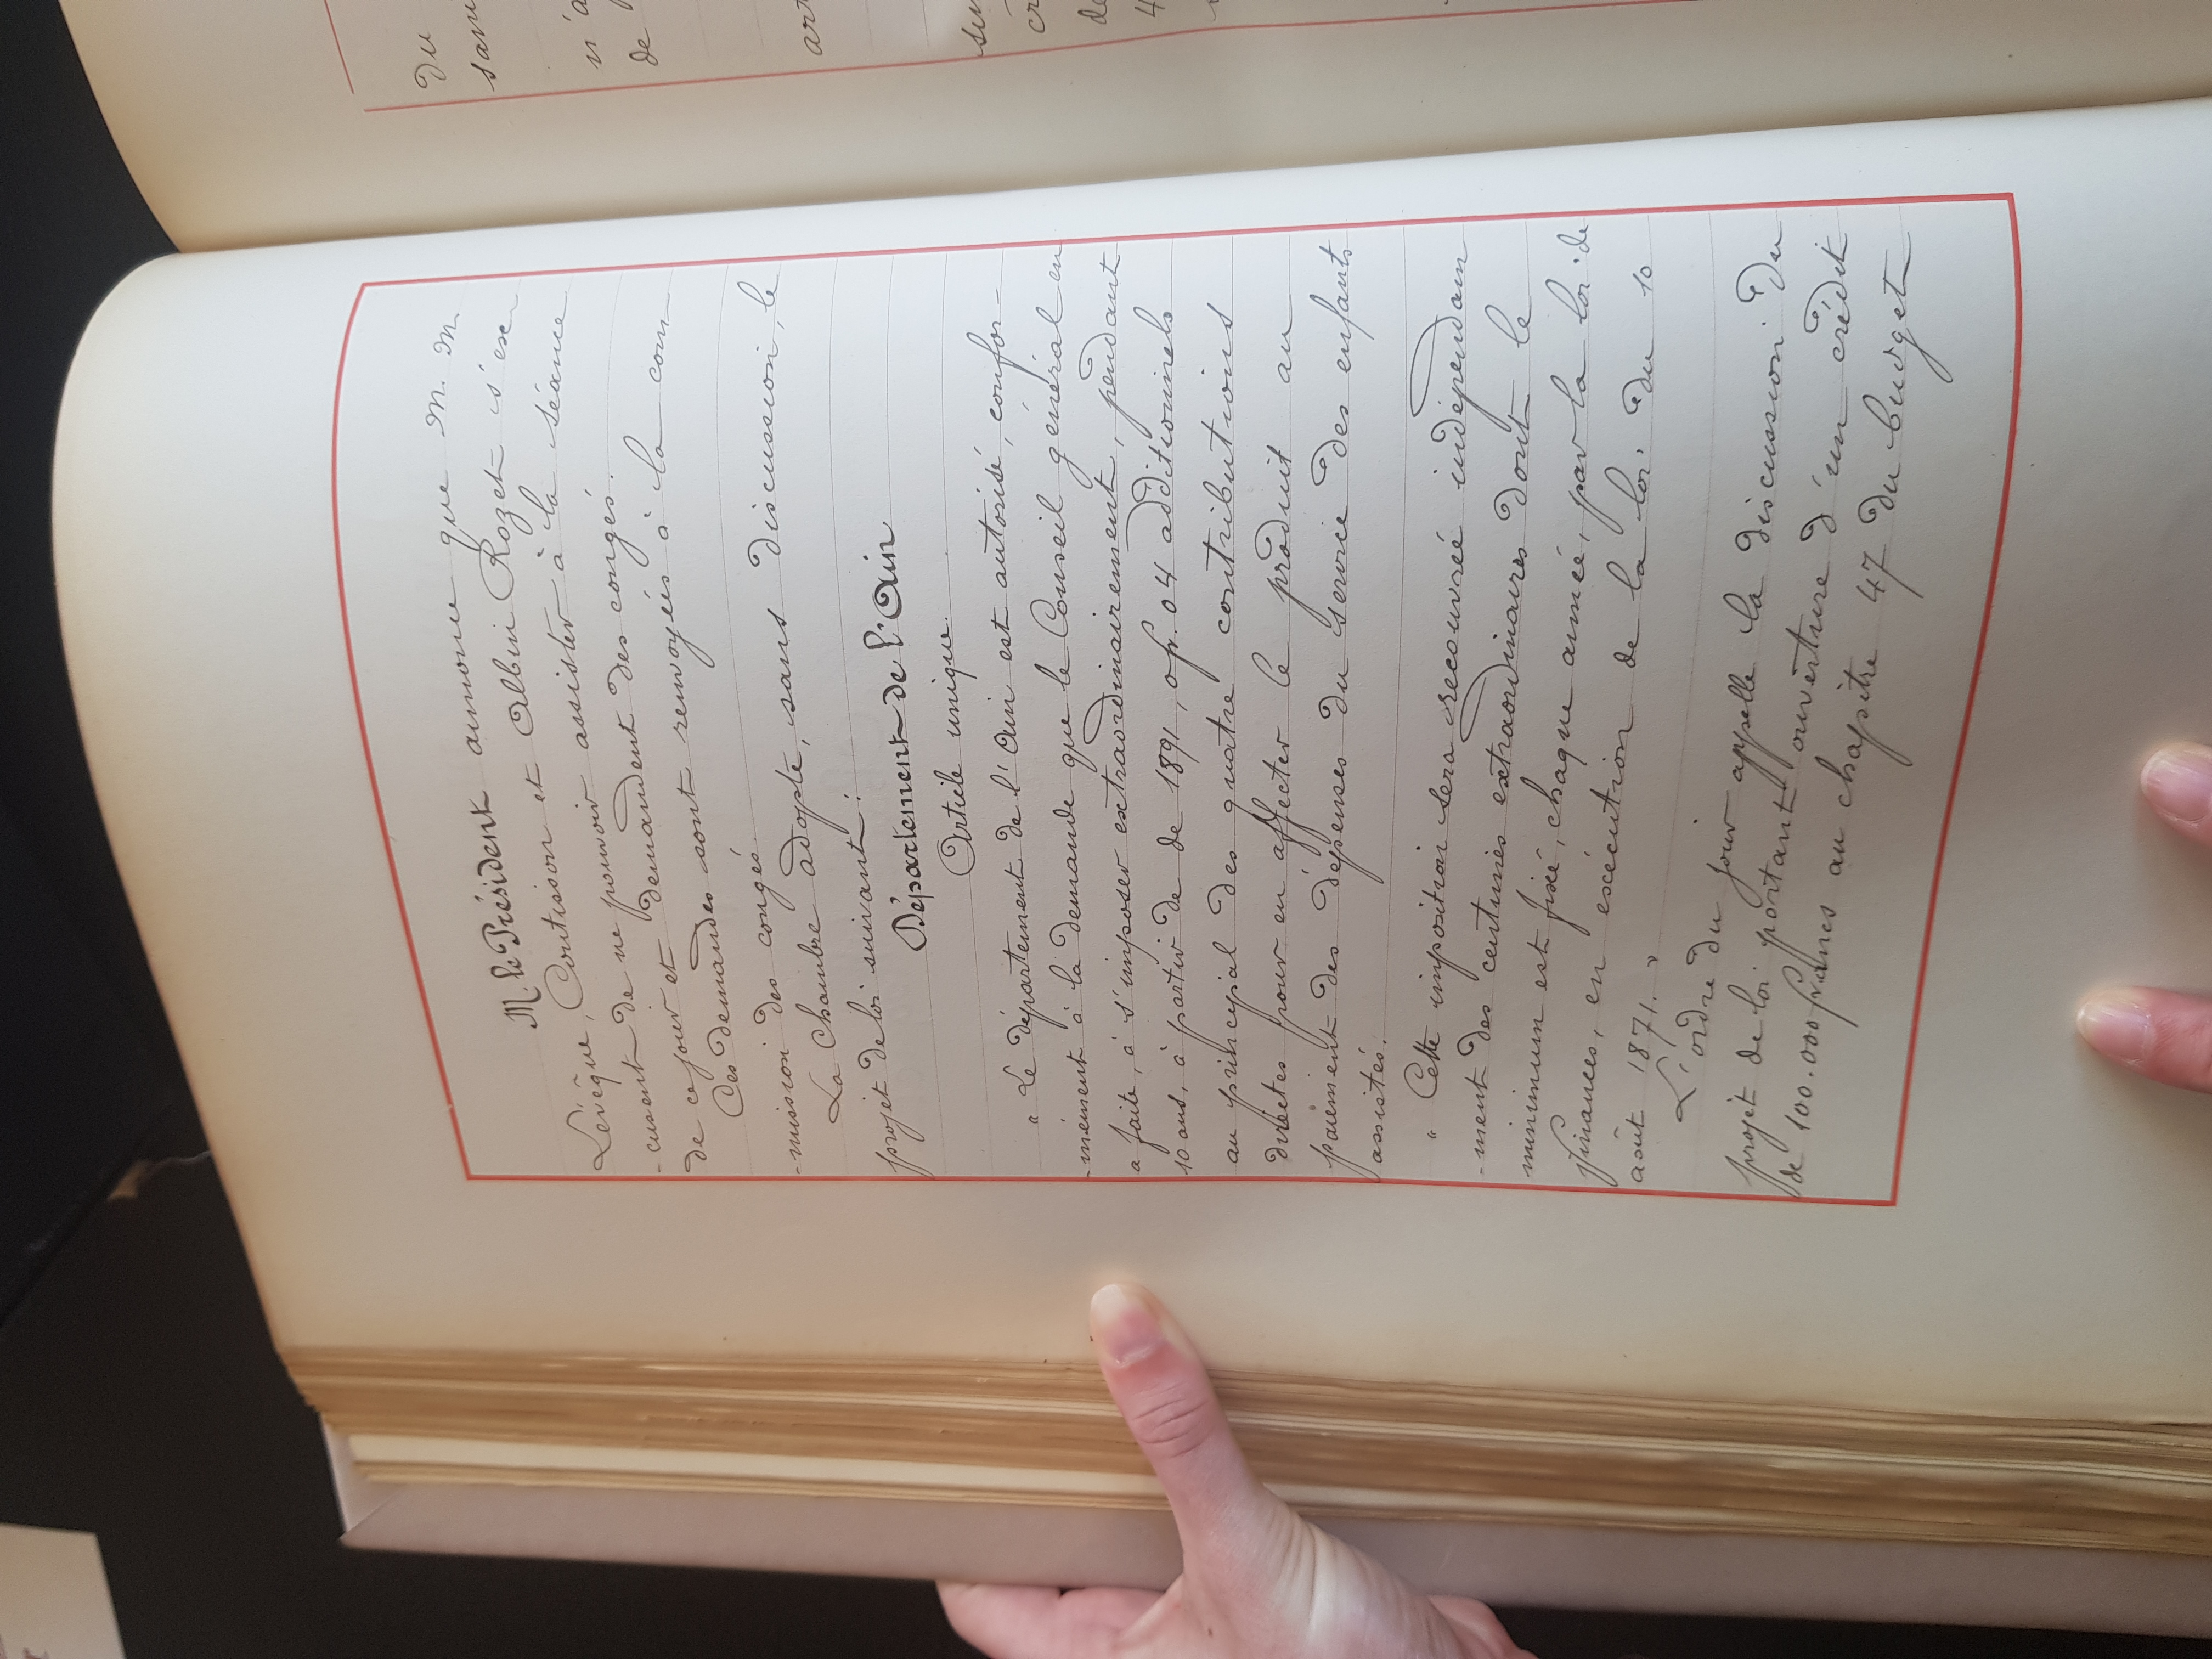 M. le Président annonce que M. M.
Lévêque, Coutisson et Albin Rozet s'ex-
-cusent de ne pouvoir assister à la séance
de ce jour et demandent des congés.
Ces demandes sont renvoyées à la com-
-mission des congés.
La Chambre adopte, sans discussion, le
projet de loi suivant :
Département de l'Ain
Article unique.
" Le département de l'Ain est autorisé, confor-
-mément à la demande que le Conseil général en
a faite, à s'imposer extraordinairement, pendant
10 ans, à partir de de 1891, 0 fr. 04 additionnels
au principal des quatre contributions
directes pour en affecter le produit au
paiement des dépenses du service des enfants
assistés.
" Cette imposition sera recouvrée indépendam
-ment des centimes extraordinaires dont le
minimum est fixé, chaque année, par la loi de
finances, en exécution de la loi du 10
août 1871. "
L'ordre du jour appelle la discussion du
projet de loi portant ouverture d'un crédit
de 100.000 francs au chapitre 47 du budget
du
n'a
de
art
de
4